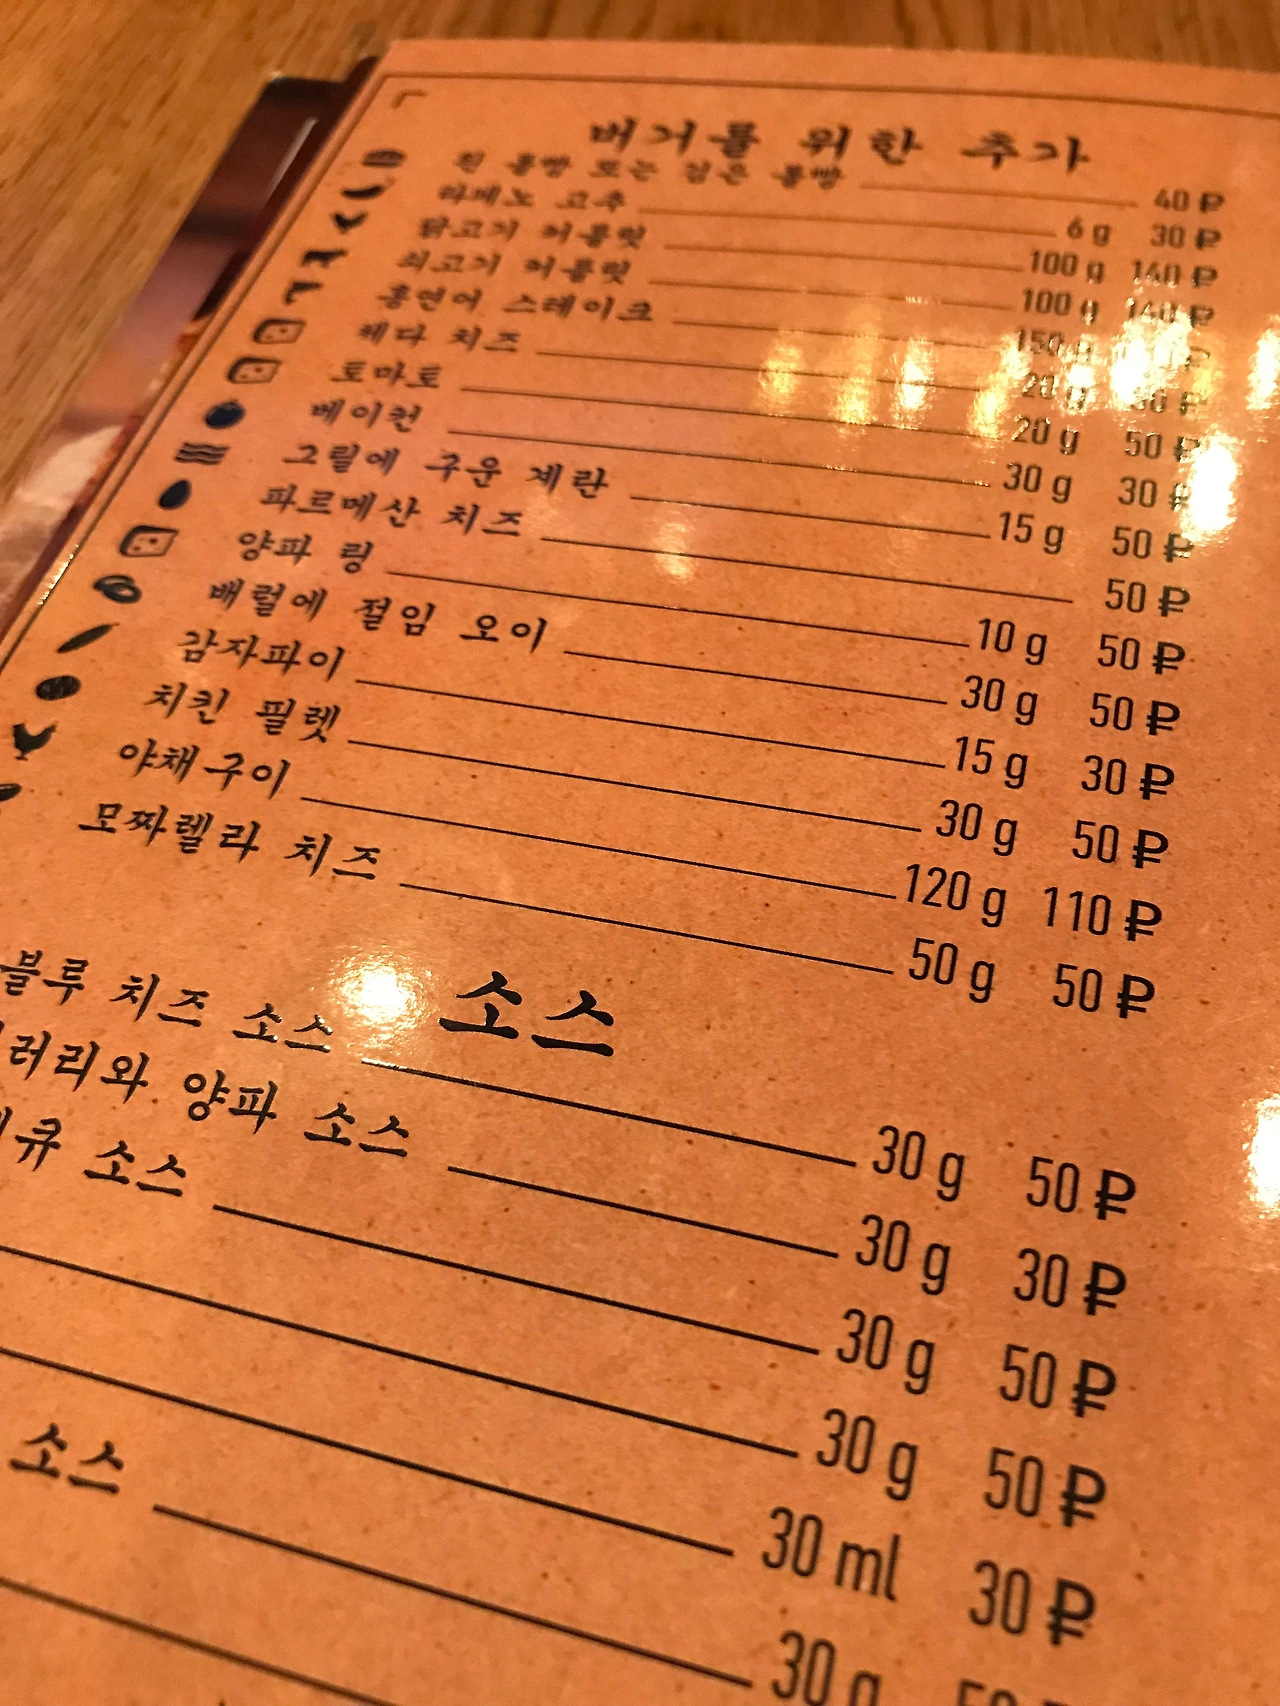 버거를 위한 추가
흰 롤빵 또는 검은 롤빵 40 ₽
고추 6 g 30 ₽
닭고기 커틀릿 100 g 140 ₽
쇠고기 커틀릿 100 g 140 ₽
훈연어 스테이크 150 g ₽
체다 치즈 20 g ₽
토마토 20 g 50 ₽
베이컨 30 g 30 ₽
그릴에 구운 계란 15 g 50 ₽
파르메산 치즈 50 ₽
양파 링 10 g 50 ₽
배럴에 절임 오이 30 g 50 ₽
감자파이 15 g 30 ₽
치킨 필렛 30 g 50 ₽
야채구이 120 g 110 ₽
모짜렐라 치즈 50 g 50 ₽
소스
블루 치즈 소스 30 g 50 ₽
러리와 양파 소스 30 g 30 ₽
큐 소스 30 g 50 ₽
30 g 50 ₽
30 ml 30 ₽
소스 30 g